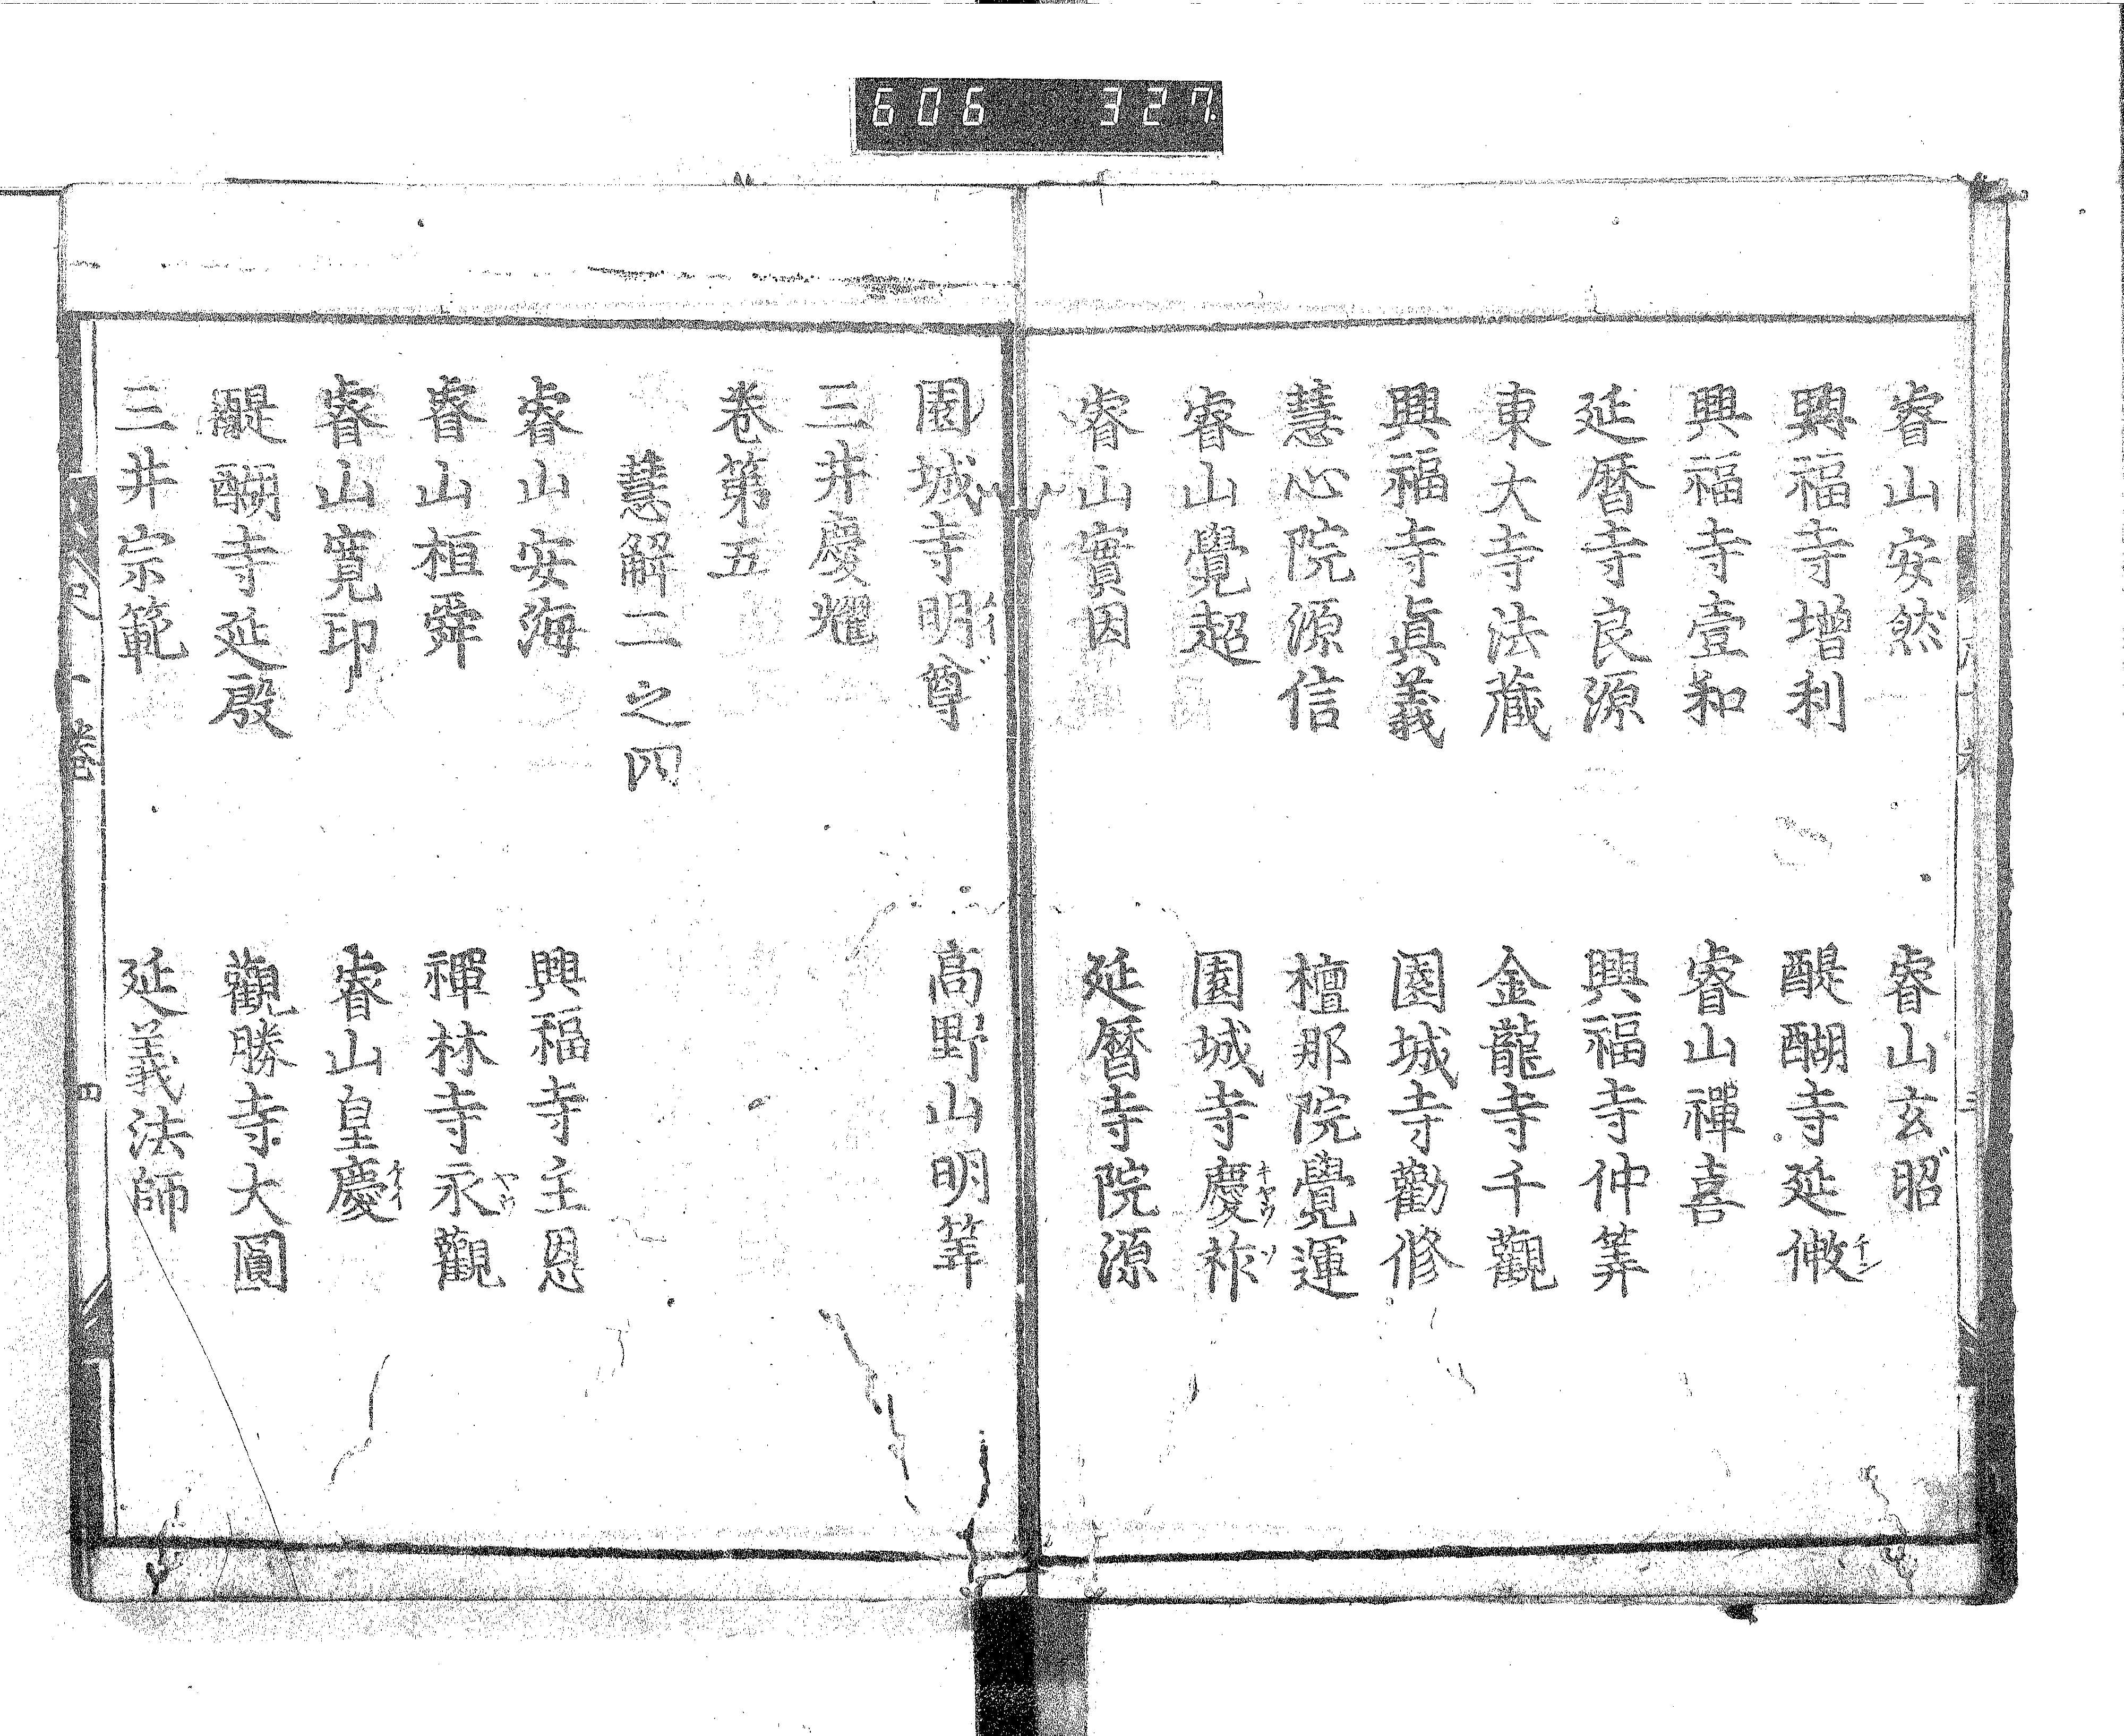 606 327
睿山安然 睿山玄昭
興福寺増利 醍醐寺延㪣
興福寺壹和 睿山禪喜
延暦寺良源 興福寺仲筭
東大寺法藏 金龍寺千觀
興福寺眞義 園城寺勸修
慧心院源信 檀那院覺運
睿山覺超 園城寺慶祚
睿山實因 延暦寺院源
園城寺明尊 高野山明筭
三井慶耀
卷第五
慧解二之四
睿山安海 興福寺主恩
睿山桓舜 禪林寺永觀
睿山寛印 睿山皇慶
醍醐寺延殷 觀勝寺大圓
三井宗範 延義法師
四